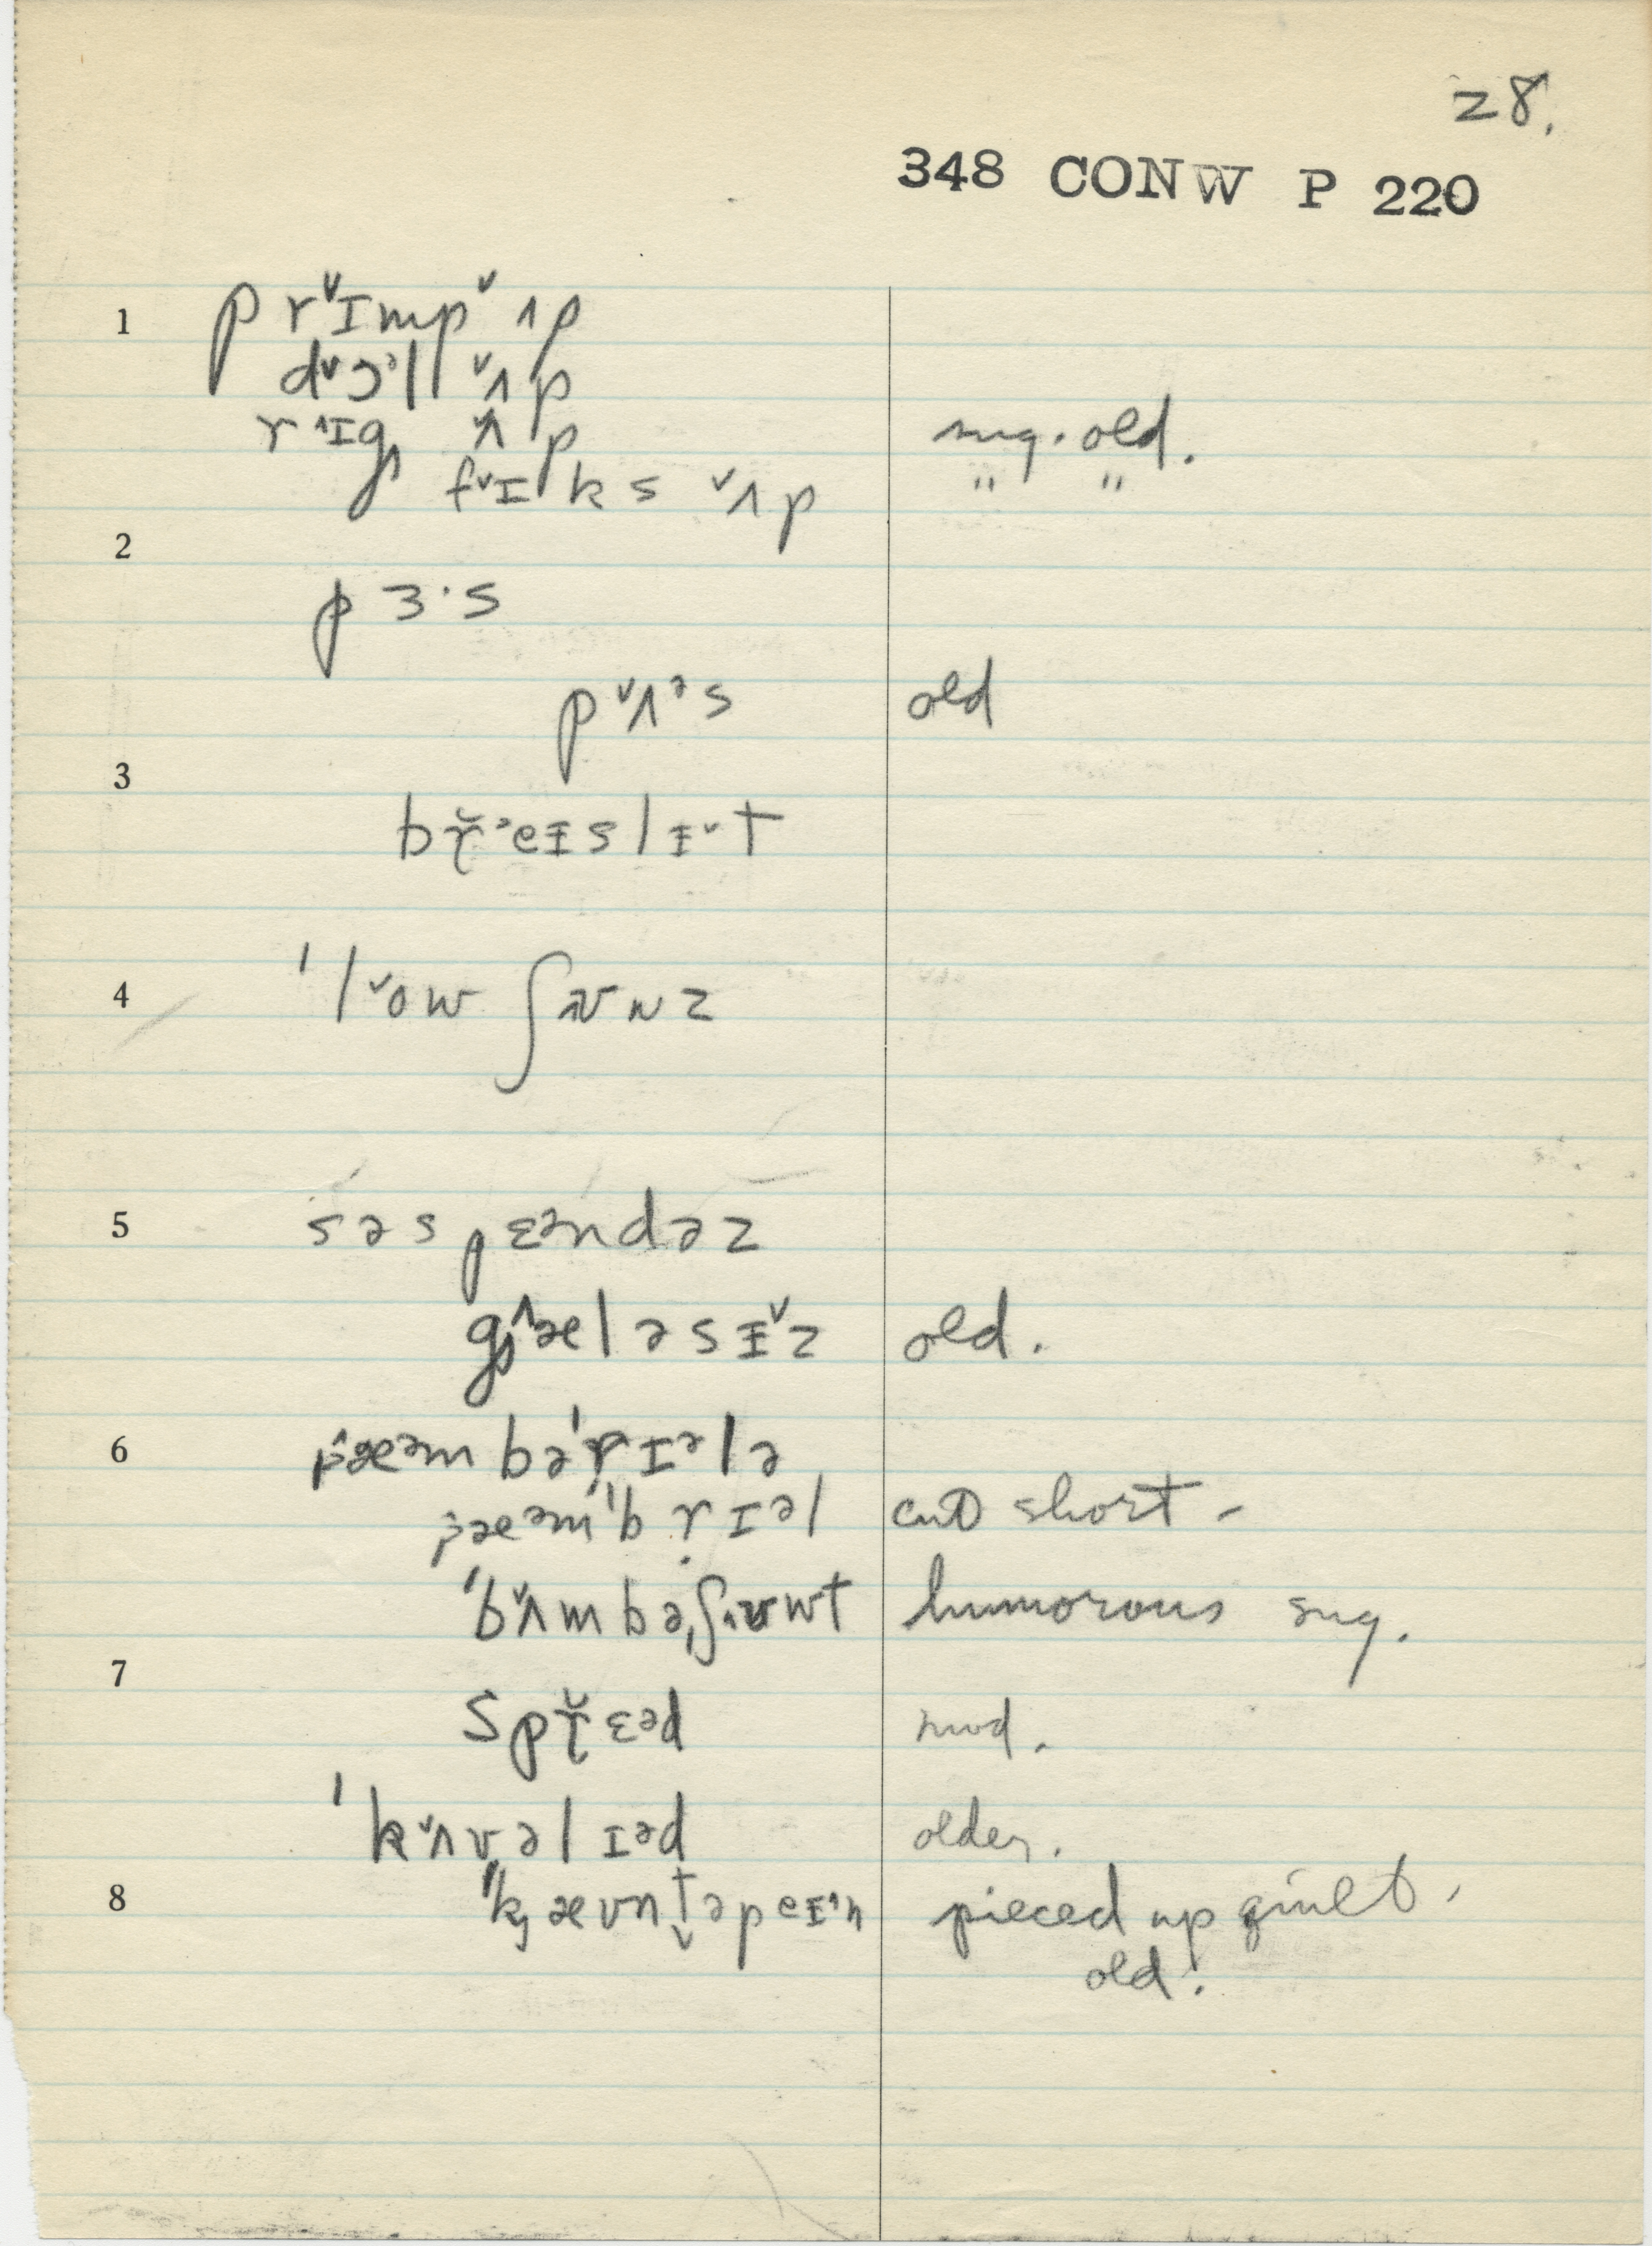 28.
348 CONW P 220
1 p r ˅ɪmp ˅ʌp
d˅ɔᵊll ˅ʌp
r ˄ɪg ˅ʌp sug. old.
f˅ɪks ˅ʌp " "
2
pɜ·s
p˅ʌᵊs old
3
br̬ᵊeɪslɪ˅t
4 ˈl˅ow ʃaʊnz
5 səspɛᵊndəz
g˄æləsɪ˅z old.
6 pæᵊmbəˈrɪᵊlə
pæᵊmˈbrɪᵊl cut short -
ˈb˅ʌmbəˌʃʌʊwt humorous sug.
7
spr̬ɛᵊd mod.
ˈk˅ʌvəlɪᵊd older.
8 ˈkæʊnt̬əpeɪ˄n pieced up quilt.
old.